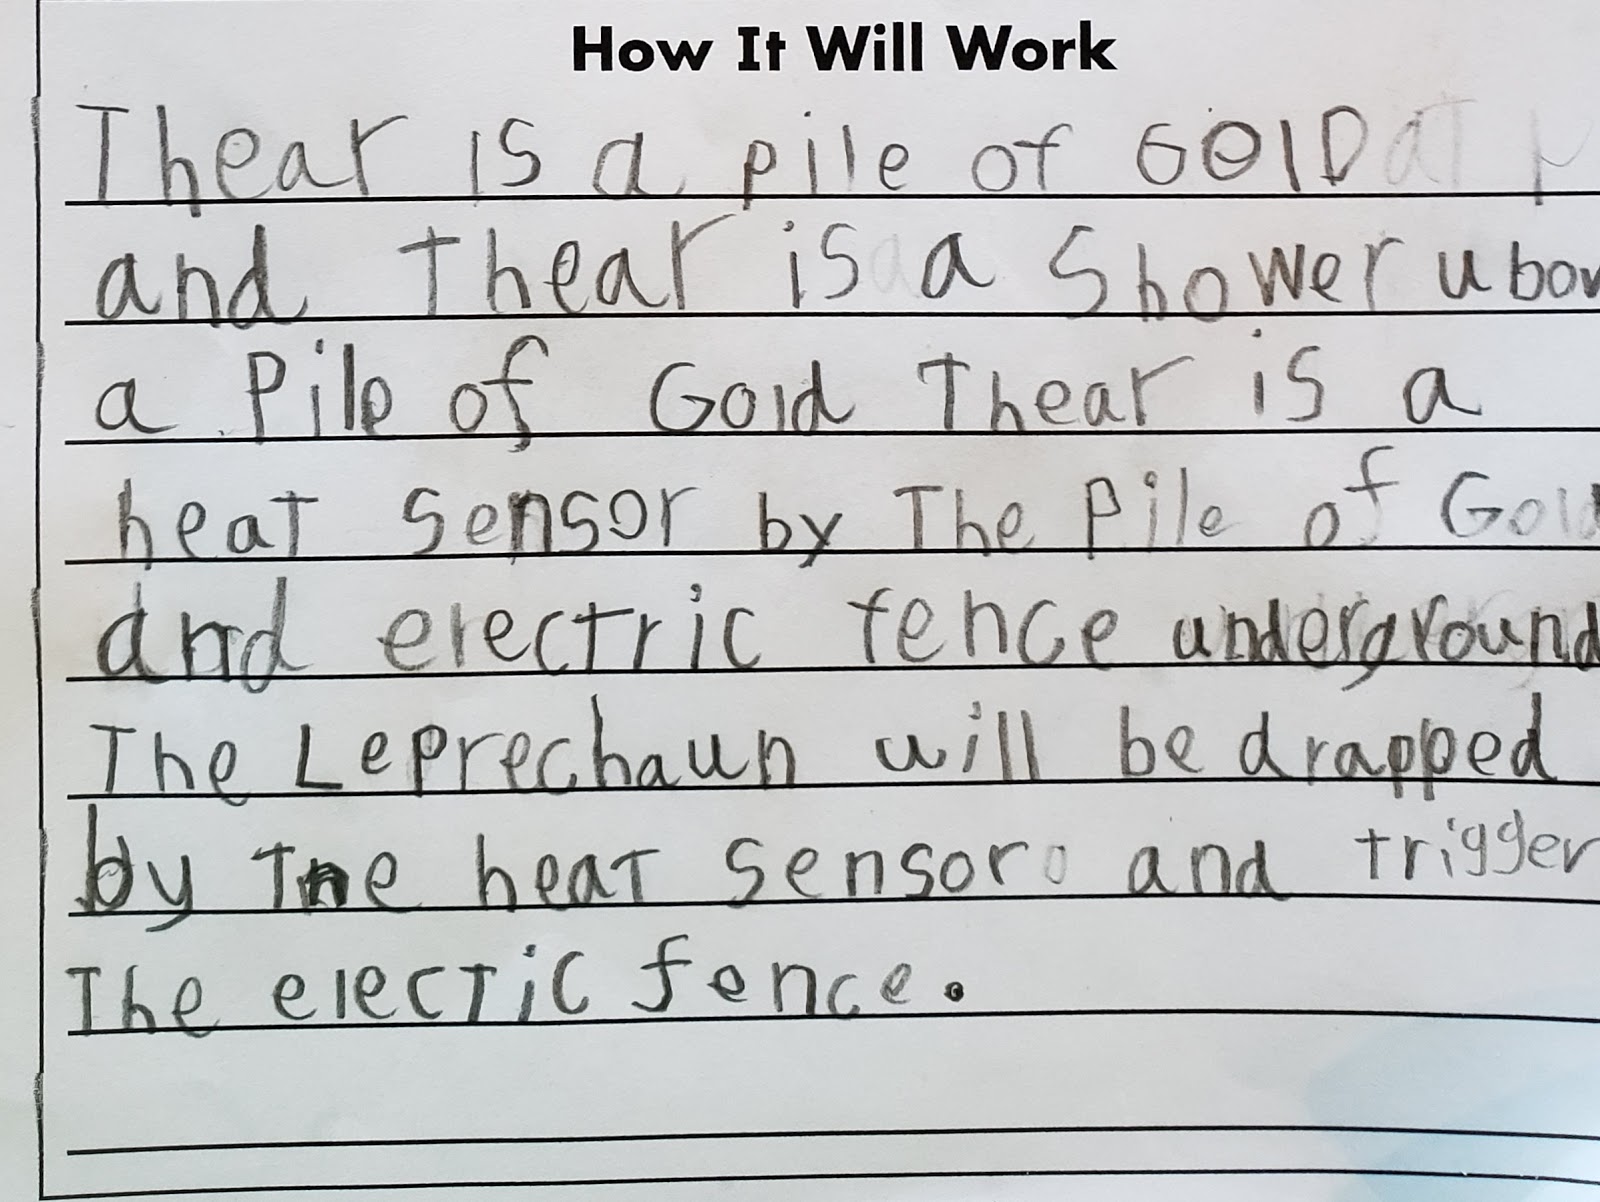 How It Will Work
Thear is a pile of GOlD
and thear is a Shower ubov
a Pile of Gold Thear is a
heat sensor by The Pile of Gold
and electric fence underground
The Leprechaun will be drapped
by The heat sensor and trigger
The elecTic fence.